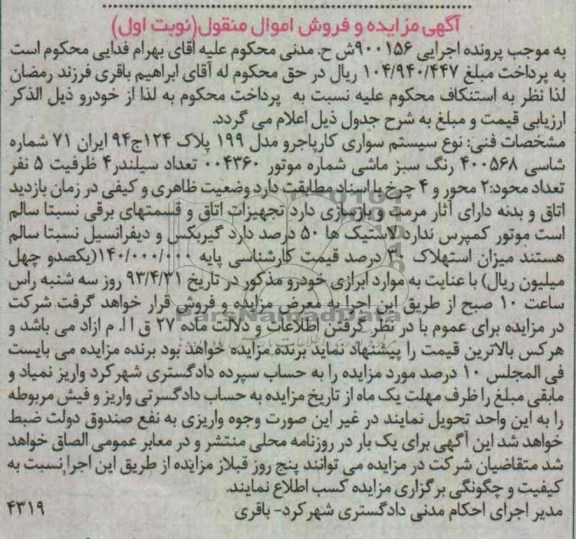 آگهی مزایده و فروش اموال منقول(نوبت اول)
به موجب پرونده اجرایی ۹۰۰۱۵۶ش ح. مدنی محکوم علیه آقای بهرام فدایی محکوم است
به پرداخت مبلغ ۱۰۴/۹۴۰/۴۴۷ ریال در حق محکوم له آقای ابراهیم باقری فرزند رمضان
لذا نظر به استنکاف محکوم علیه نسبت به پرداخت محکوم به لذا از خودرو ذیل الذکر
ارزیابی قیمت و مبلغ به شرح جدول ذیل اعلام می گردد.
مشخصات فنی: نوع سیستم سواری کارپاجرو مدل ۱۹۹ پلاک ۱۲۴ج۹۴ ایران ۷۱ شماره
شاسی ۴۰۰۵۶۸ رنگ سبز ماشی شماره موتور ۰۰۴۳۶۰ تعداد سیلندر۴ ظرفیت ۵ نفر
تعداد محود:۲ محور و ۴ چرخ با اسناد مطابقت دارد وضعیت ظاهری و کیفی در زمان بازدید
اتاق و بدنه دارای آثار مرمت و بازسازی دارد تجهیزات اتاق و قسمتهای برقی نسبتا سالم
است موتور کمپرس ندارد لاستیک ها ۵۰ درصد دارد گیربکس و دیفرانسیل نسبتا سالم
هستند میزان استهلاک ۳۰ درصد قیمت کارشناسی پایه ۱۴۰/۰۰۰/۰۰۰(یکصدو چهل
میلیون ریال) با عنایت به موارد ابرازی خودرو مذکور در تاریخ ۹۳/۴/۳۱ روز سه شنبه راس
ساعت ۱۰ صبح از طریق این اجرا به معرض مزایده و فروش قرار خواهد گرفت شرکت
در مزایده برای عموم با در نظر گرفتن اطلاعات و دلالت ماده ۲۷ ق ا ا. م ازاد می باشد و
هرکس بالاترین قیمت را پیشنهاد نماید برنده مزایده خواهد بود برنده مزایده می بایست
فی المجلس ۱۰ درصد مورد مزایده را به حساب سپرده دادگستری شهرکرد واریز نمیاد و
مابقی مبلغ را ظرف مهلت یک ماه از تاریخ مزایده به حساب دادگسترتی واریز و فیش مربوطه
را به این واحد تحویل نمایند در غیر این صورت وجوه واریزی به نفع صندوق دولت ضبط
خواهد شد این آگهی برای یک بار در روزنامه محلی منتشر و در معابر عمومی الصاق خواهد
شد متقاضیان شرکت در مزایده می توانند پنج روز قبلاز مزایده از طریق این اجرا نسبت به
کیفیت و چگونگی برگزاری مزایده کسب اطلاع نمایند.
مدیر اجرای احکام مدنی دادگستری شهرکرد- باقری ۴۳۱۹
ParsNamadData